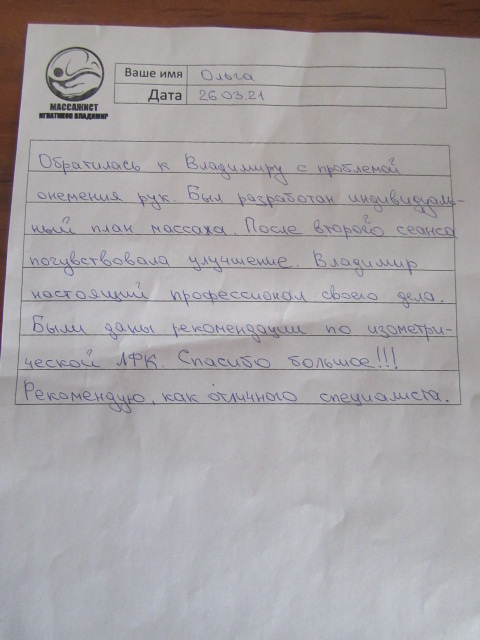 Ваше имя Ольга
Дата 26.03.21
МАССАЖИСТ
ИГНАТИКОВ ВЛАДИМИР
Обратилась к Владимиру с проблемой
онемения рук. Был разработан индивидуаль-
ный план массажа. После второго сеанса
почувствовала улучшение. Владимир
настоящий профессионал своего дела.
Были даны рекомендации по изометри-
ческой ЛФК. Спасибо большое!!!
Рекомендую, как отличного специалиста.